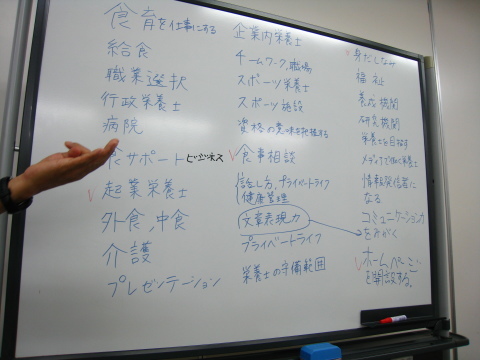 食育を仕事にする
給食
職業選択
行政栄養士
病院
食サポートビジネス
起業栄養士
外食、中食
介護
プレゼンテーション
企業内栄養士
チームワーク、職場
スポーツ栄養士
スポーツ施設
資格の意味を把握する
食事相談
話し方、プライベートライフ
健康管理
文章表現力
プライベートライフ
栄養士の守備範囲
身だしなみ
福祉
養成機関
研究機関
栄養士を目指す
メディアで働く栄養士
情報発信者に
なる
コミュニケーション力
をみがく
ホームページ
を開設する。